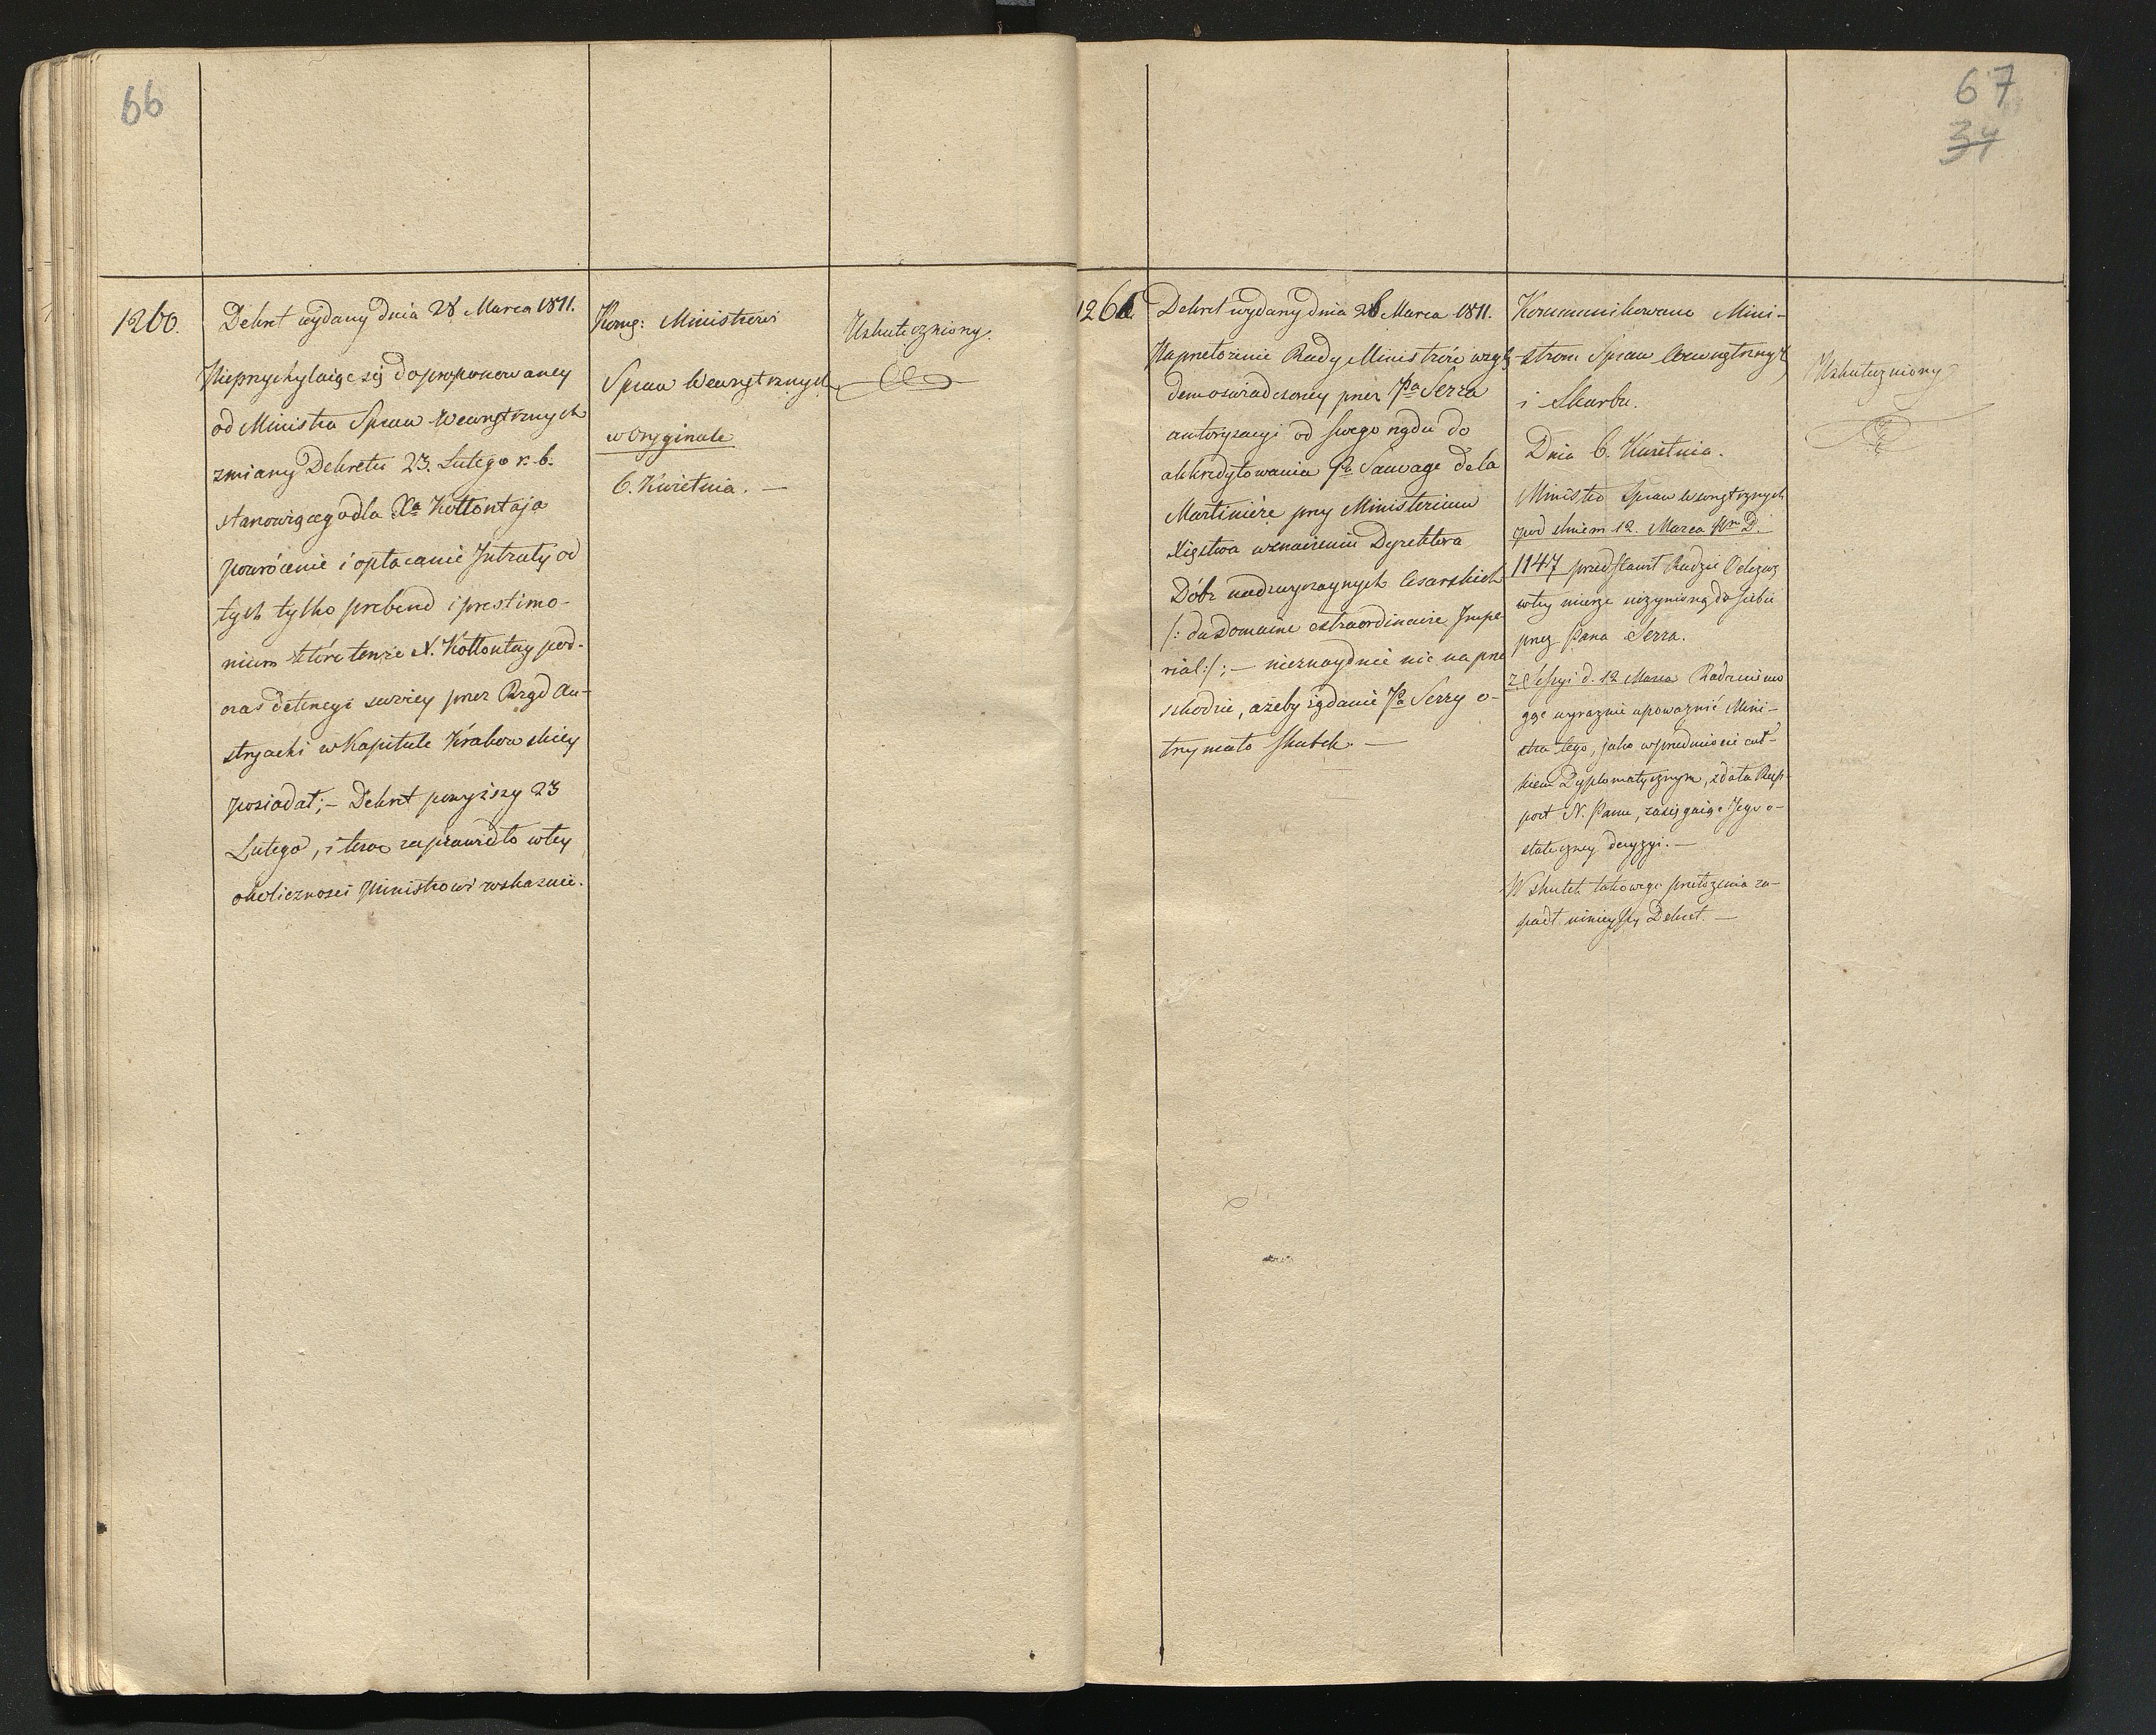 66
1260.
Dekret wydany dnia 28 Marca 1811.
Nieprzychylaiąc się do proponowaney
od Ministra Spraw Wewnętrznych
zmiany Dekretu 23. Lutego r. b.
stanowiącego dla Xa Kołłontaja
powrócenie i opłacanie Intraty od
tych tylko prebend i prestimo-
nium które tenże X. Kołłontay pod-
czas detencyi swoiey przez Rząd Au-
stryacki w Kapitule Krakowskiey
posiadał; – Dekret powyższy 23
Lutego, i teraz za prawidło w tey
okoliczności Ministrowi wskazuie.
Kom: Ministrowi
Spraw Wewnętrznych
w Oryginale
6. Kwietnia. –
Uskuteczniony.
67
34
1261.
Dekret wydany dnia 28 Marca 1811.
Na przełożenie Rady Ministrów wzglę-
dem oświadczoney przez Pa Serra
autoryzacyi od swego rządu do
akkredytowania Pa Sauvage de la
Martinière przy Ministerium
Xięstwa w znaczeniu Dyrektora
Dóbr nadzwyczaynych Cesarskich
/: du Domaine extraordinaire Impe-
rial :/; – nieznayduie nic na prze
szkodzie, ażeby żądanie Pa Serry o-
trzymało skutek. –
Kommunikowano Mini-
strom Spraw Wewnętrznych
i Skarbu.
Dnia 6. Kwietnia.
Minister Spraw Wewnętrznych
pod dniem 12. Marca Nr D.
1147 przedstawił Radzie Odezwę
w tey mierze uczynioną do siebie
przez Pana Serra.
z Sessyi d. 12 Marca Rada nie mo
gąc wyraźnie upoważnić Mini-
stra tego, jako w przedmiocie cał-
kiem Dyplomatycznym, zdała Rap-
port N. Panu, zasięgaiąc Jego o-
stateczney decyzyi. –
W skutek takowego przełożenia za-
padł ninieyszy Dekret. –
Uskuteczniony